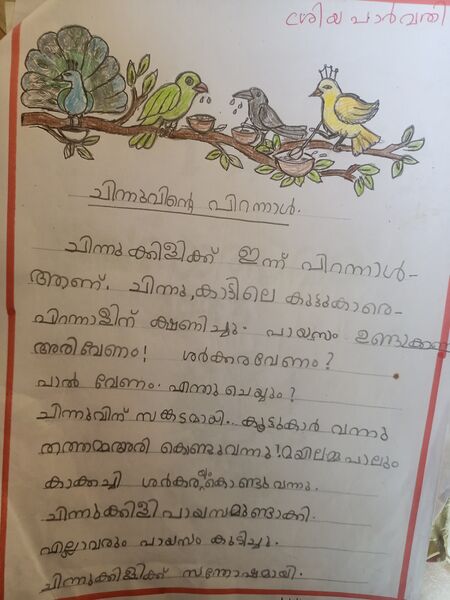 ശ്രിയ പാർവതി
ചിന്നുവിന്റെ പിറന്നാൾ.
ചിന്നുക്കിളിക്ക് ഇന്ന് പിറന്നാൾ-
ആണ്. ചിന്നു, കാട്ടിലെ കൂട്ടുകാരെ-
പിറന്നാളിന് ക്ഷണിച്ചു. പായസം ഉണ്ടാക്കണം
അരിവേണം! ശർക്കരവേണം?
പാൽ വേണം. എന്തു ചെയ്യും?
ചിന്നുവിന് സങ്കടമായി.. കൂട്ടുകാർ വന്നു
തത്തമ്മഅരി കൊണ്ടുവന്നു! മയിലമ്മപാലും
കാക്കച്ചി ശർകരയും കൊണ്ടുവന്നു.
ചിന്നുക്കിളി പായസമുണ്ടാക്കി.
എല്ലാവരും പായസം കുടിച്ചു.
ചിന്നുക്കിളിക്ക് സന്തോഷമായി.